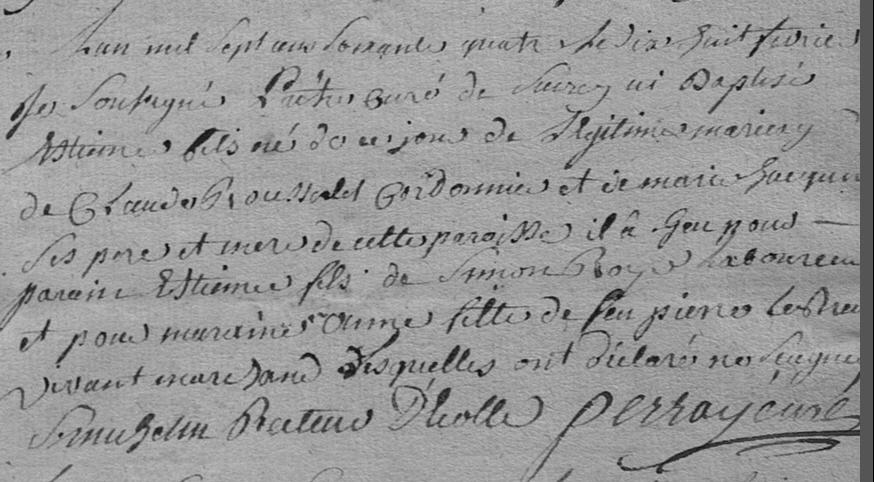 Lan mil Sept cens Soixante quatre le dix huit fevrie
Je Soussigné Prêtre Curé de ai Baptisé
Estienne fils né de ce jour de legitime mariag
de Claude Cordonnie et de marie Jacquin
Ses pere et mere de cette paroisse il à Heu pour
parain Estienne fils de Simon Laboureu
et pour maraine anne fille de feu pierre
vivant marchand lesquelles ont déclaré ne
Recteur D'écolle perray curé